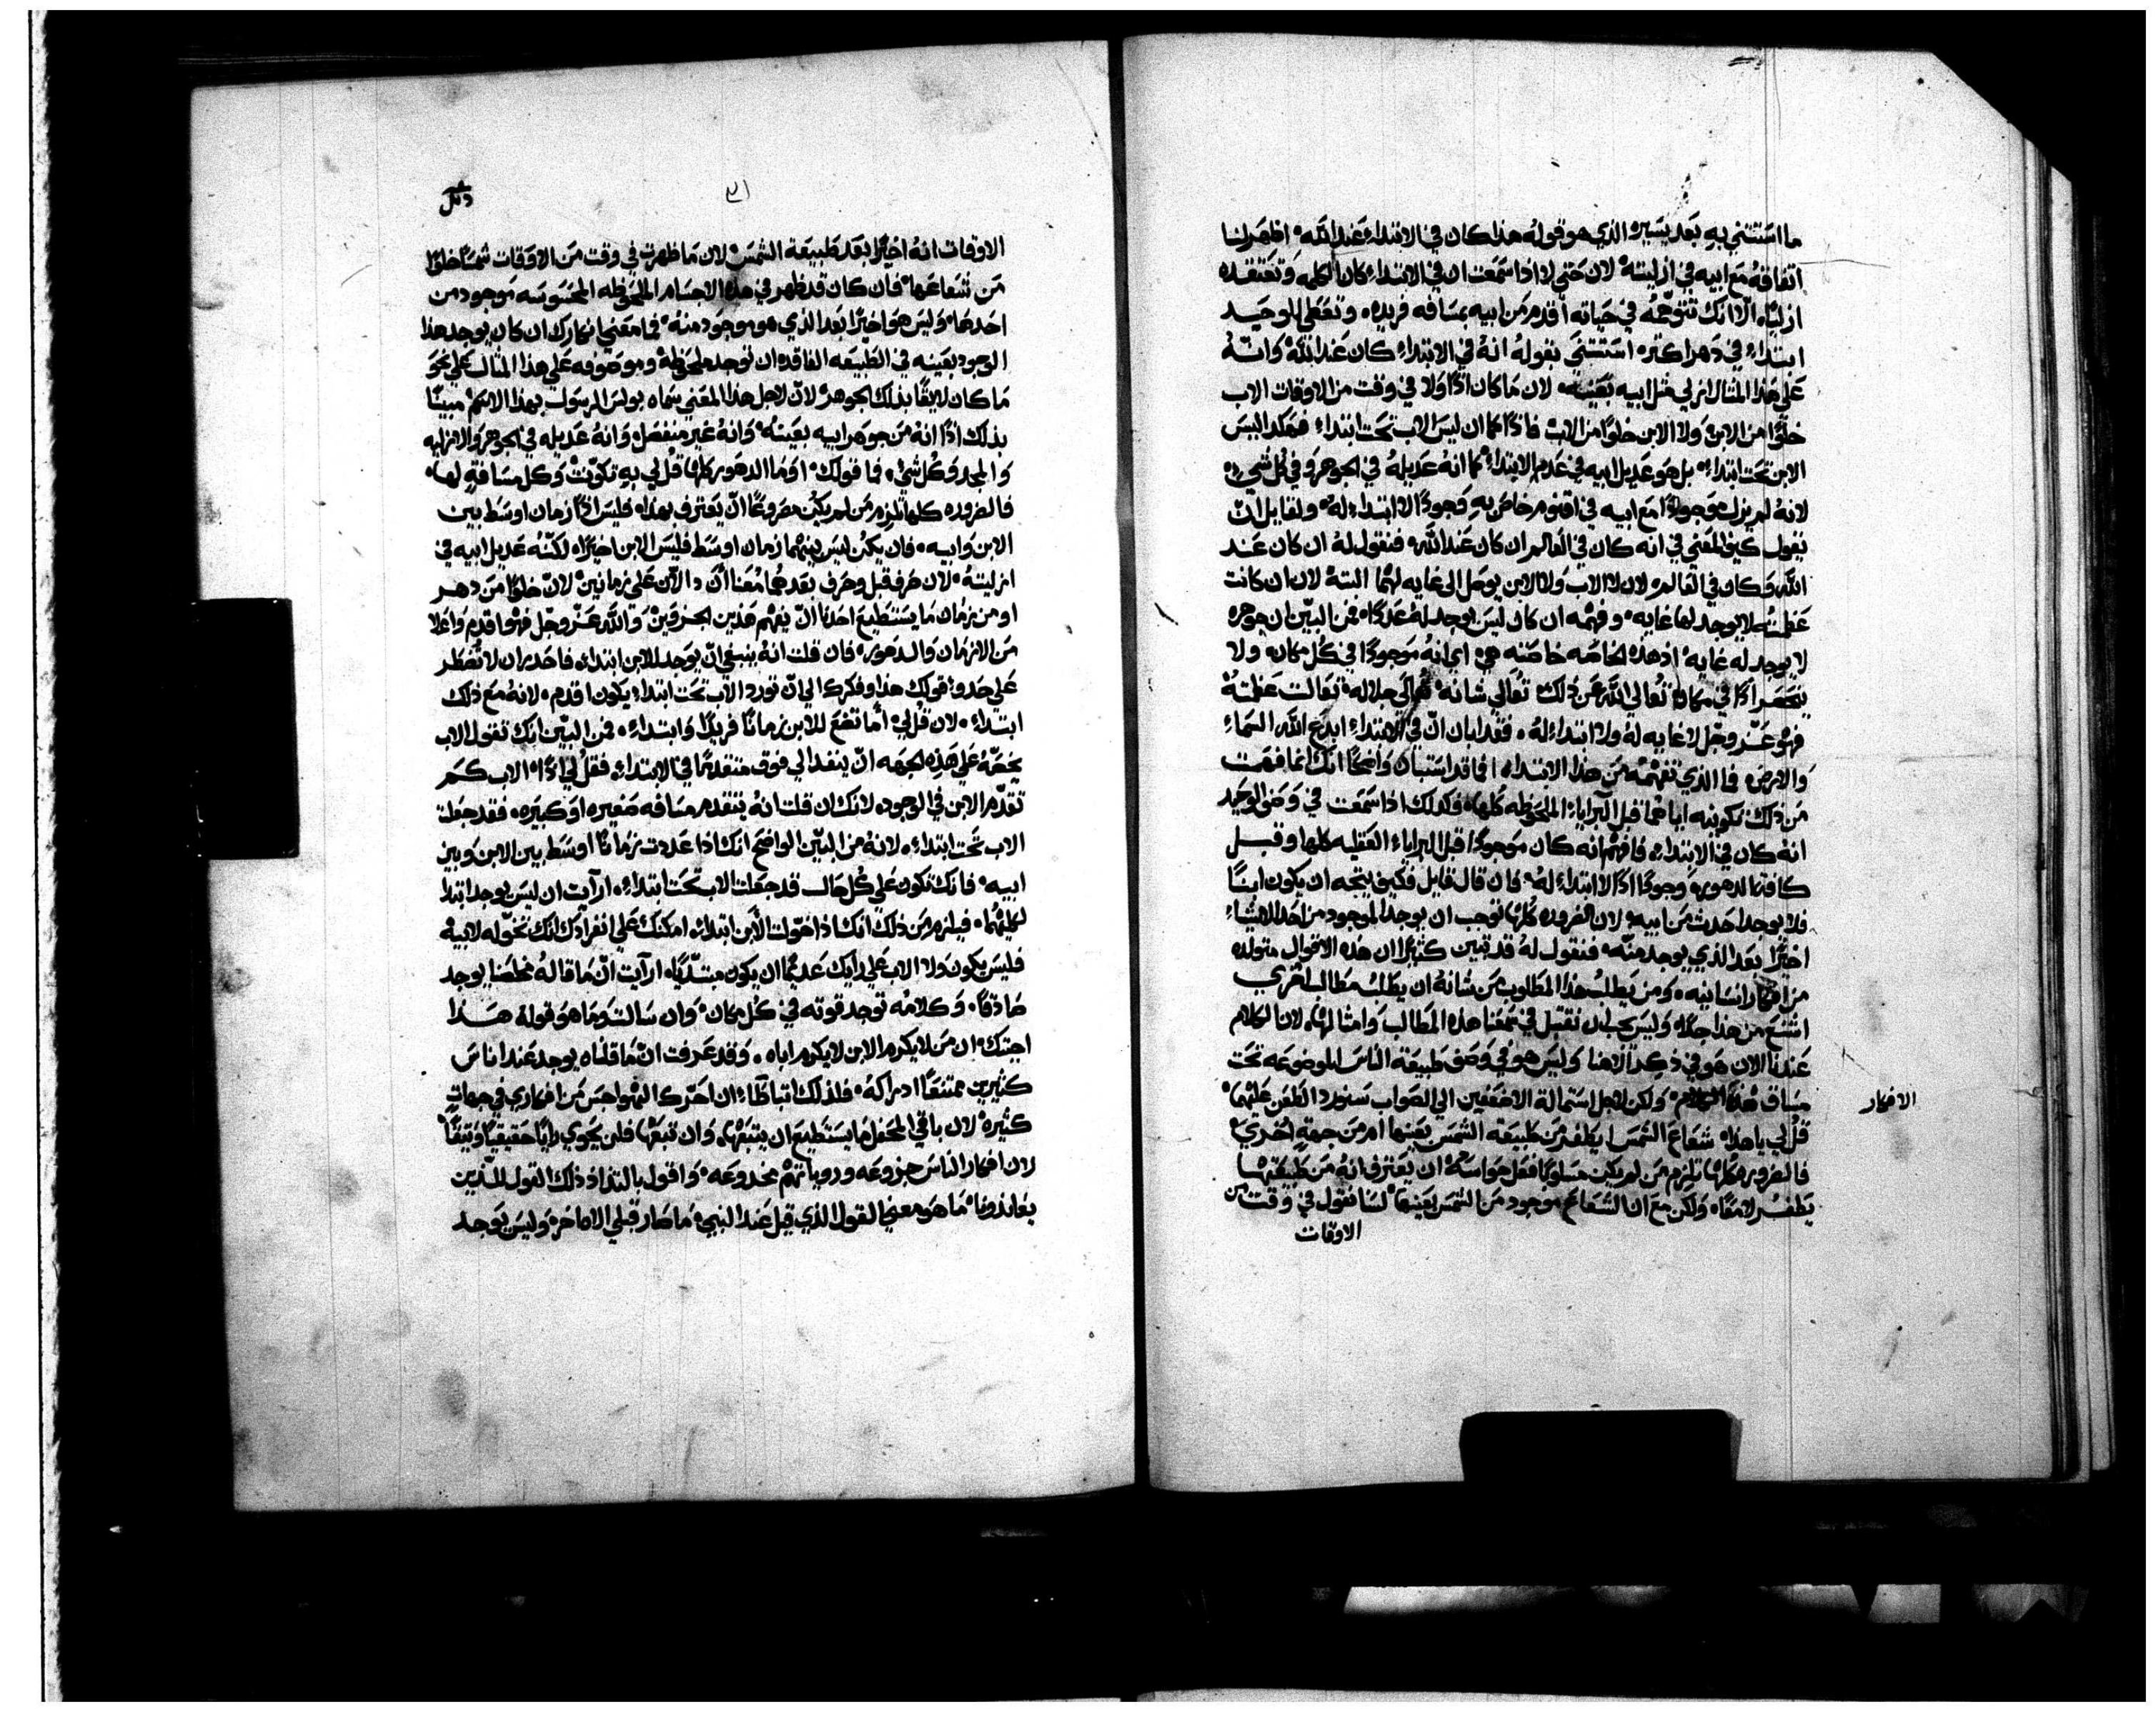 ما استثني به بعد يسير الذي هو قوله هذا كان في الابتداء عند الله اظهر لنا
اتفاقه مع ابيه في ازليته لان حتي لا اذا سمعت ان في الابتداء كان الكلمه وتعتقده
ازليًا الا انك تتوهمه في حياته اقدم من ابيه بمسافه فريده وتعطي الوحيد
ابتداء في دهر اكثر استثني بقوله انه في الابتداء كان عند الله وانه
علي هذا المثال ازلي مثل ابيه بعينه لان ما كان اذًا ولا في وقت من الاوقات الاب
خلوًا من الابن ولا الابن خلوًا من الاب فاذًا كما ان ليس الاب تحت ابتداء فهكذا ليس
الابن تحت ابتداء بل هو عديل ابيه في عدم الابتداء كما انه عديله في الجوهر وفي كل شي
لانه لم يزل موجودًا مع ابيه في اقنوم خاص به وجودًا لا ابتداء له ولقايل ان
يقول كيف المعني في انه كان في العالم ان كان عند الله فنقول له ان كان عند
الله وكان في العالم لان لا الاب ولا الابن يوجد الي غايه لهما البتة لان ان كانت
عظمته لا يوجد لها غايه وفهمه ان كان ليس يوجد له عددًا فمن البين ان جوهره
لا يوجد له غايه اذ هذه الخاصه خاصته هي اي انه موجودًا في كل مكان ولا
ينحصر اذًا في مكان تعالي الله عن ذلك تعالي شانه تعالي جلاله تعالت عظمته
فهو عز وجل لا غايه له ولا ابتداء له فقد ابان ان في الابتداء ابدع الله السماء
والارض فما الذي تفهمه من هذا الابتداء افما قد استبان واضحًا انك انما فهمت
من ذلك تكوينه اياهما قبل البرايا الملحوظه كلها فكذلك اذا سمعت في وصف الوحيد
انه كان في الابتداء فافهم انه كان موجودًا قبل البرايا العقليه كلها وقبل
كافة الدهور وجودًا اذًا لا ابتداء له فان قال قايل فكيف يتجه ان يكون ابنًا
فلا يوجد احدث من ابيه لان الضروره كلها توجب ان يوجد الموجود من احد الاشياء
اخيرًا بعد الذي يوجد منه فنقول له قد تبين كثيرًا ان هذه الاقوال متولده
من افكار انسانيه ومن يطلب هذا المطلوب من شانه ان يطلب مطالب اخري
اشنع من هذا جدًا وليس يجب ان نقتبل في سمعنا هذه المطالب وامثالها لان الكلام
عندنا الان هو في ذكر الاهنا وليس هو في وصف طبيعة الناس الموضوعه تحت
مساق هذه الافكار ولكن لاجل استمالة الاضعفين الي الصواب سنورد الطعن عليهما
قل لي يا هذا شعاع الشمس ايطفر من طبيعة الشمس بعينها ام من جهةٍ اخري
فالضروره كلها تلزم من لم يكن مسلوبًا فعل حواسه ان يعترف انه من طبيعتها
يطفر لامعًا ولكن مع ان الشعاع موجود من الشمس بعينها لسنا نقول في وقت من
الاوقات
الافكار
٣١
الاوقات انه اخيرًا بعد طبيعة الشمس لان ما ظهرت في وقت من الاوقات شمسًا خلوًا
من شعاعها فان كان قد ظهر في هذه الاجسام الملحوظه المحسوسه موجود من
احدها وليس هو اخيرًا بعد الذي هو موجود منه فما معني انكارك ان كان يوجد هذا
الوجود بعينه في الطبيعه الفاقده ان توجد ملحوظه وموصوفه علي هذا المثال علي نحو
ما كان لايقًا بذلك الجوهر لان لاجل هذا المعني سماه بولس الرسول بهذا الاسم مبينًا
بذلك اذًا انه من جوهر ابيه بعينه وانه غير منفصل وانه عديله في الجوهر والازليه
والمجد وكل شي فما قولك اوما الدهور كلها قل لي به تكونت وكل مسافةٍ لها
فالضروره كلها تلزم من لم يكن مصروعًا ان يعترف بهذا فليس اذًا زمان اوسط بين
الابن وابيه فان يكن ليس بينهما زمان اوسط فليس الابن اخيرًا لكنه عديل ابيه في
ازليته لان حرف قبل وحرف بعد هما معنا ان دالان علي زمانين لان خلوًا من دهر
او من زمان ما يستطيع احدًا ان يفهم هذين الحرفين والله عز وجل فهو اقدم واعلا
من الازمان والدهور فان قلت انه ينبغي ان يوجد للابن ابتداء فاحذر ان لا تضطر
علي حذو قولك هذا وفكرك الي ان تورد الاب تحت ابتداء يكون اقدم لانه مع ذلك
ابتداء لان قل لي اما تضع للابن زمانًا فريدًا وابتداء فمن البين انك تقول الاب
يخصه علي هذه الجهه ان ينفد الي فوق متقدمًا في الابتداء فقل لي اذًا الاب كم
تقدم الابن في الوجود لانك ان قلت انه يتقدم مسافه صغيره او كبيره فقد جعلت
الاب تحت ابتداء لانه من البين الواضح انك اذا عددت زمانًا اوسط بين الابن وبين
ابيه فانك تكون علي كل حال قد جعلت الاب تحت ابتداء ارايت ان ليس يوجد ابتدا
لكليهما فيلزم من ذلك انك اذا خولت الابن ابتداء امكنك علي انفرادك انك تخوله لابيه
فليس يكون ولا الاب علي رايك عديمًا ان يكون مبتديًا ارايت ان ما قاله مخلصنا يوجد
صادقًا وكلامه توجد قوته في كل مكان وان سالت وما هو قوله هذا
اجبتك ان من لا يكرم الابن لا يكرم اباه وقد عرفت ان ما قلناه يوجد عند اناس
كثيرين ممتنعًا ادراكه فلذلك اتباطا ان احرك الهواجس من افكاري في جهات
كثيره لان باقي المحفل ما يستطيع ان يتبعها وان تبعها فلن يحوي رايًا حقيقيًا وثيقًا
لان افكار الناس جزوعه وروياتهم مخدوعه واقول بالتذاذ ذلك القول للذين
يعاندونا ما هو معني القول الذي قيل عند النبي ما صار قبلي الاها اخر وليس يوجد